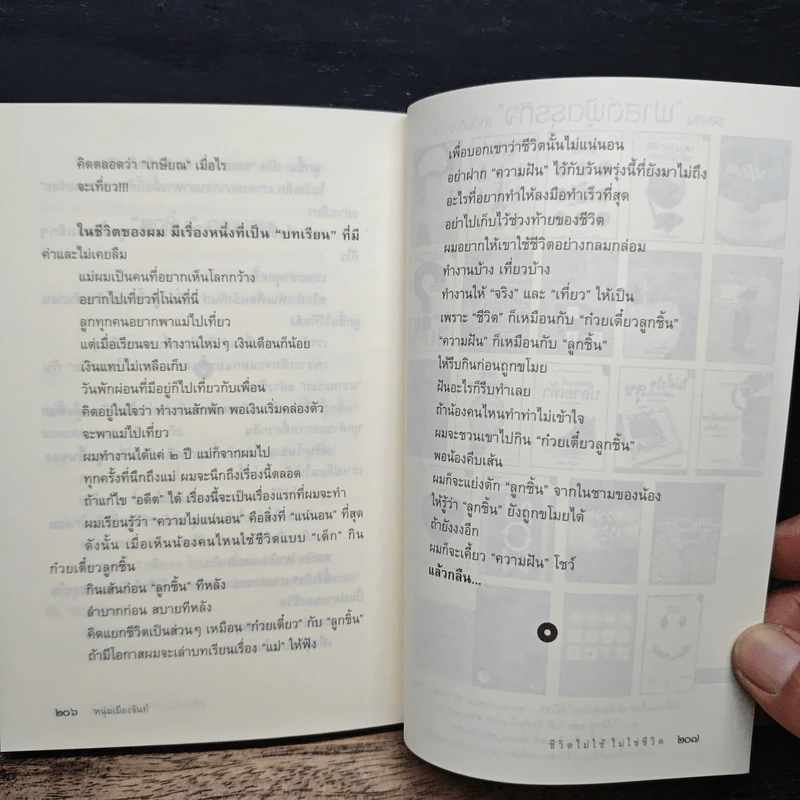 คิดตลอดว่า "เกษียณ" เมื่อไร
จะเที่ยว!!!
ในชีวิตของผม มีเรื่องหนึ่งที่เป็น "บทเรียน" ที่มี
ค่าและไม่เคยลืม
แม่ผมเป็นคนที่อยากเห็นโลกกว้าง
อยากไปเที่ยวที่โน่นที่นี่
ลูกทุกคนอยากพาแม่ไปเที่ยว
แต่เมื่อเรียนจบ ทำงานใหม่ๆ เงินเดือนก็น้อย
เงินแทบไม่เหลือเก็บ
วันพักผ่อนที่มีอยู่ก็ไปเที่ยวกับเพื่อน
คิดอยู่ในใจว่า ทำงานสักพัก พอเงินเริ่มคล่องตัว
จะพาแม่ไปเที่ยว
ผมทำงานได้แค่ ๒ ปี แม่ก็จากผมไป
ทุกครั้งที่นึกถึงแม่ ผมจะนึกถึงเรื่องนี้ตลอด
ถ้าแก้ไข "อดีต" ได้ เรื่องนี้จะเป็นเรื่องแรกที่ผมจะทำ
ผมเรียนรู้ว่า "ความไม่แน่นอน" คือสิ่งที่ "แน่นอน" ที่สุด
ดังนั้น เมื่อเห็นน้องคนไหนใช้ชีวิตแบบ "เด็ก" กิน
ก๋วยเตี๋ยวลูกชิ้น
กินเส้นก่อน "ลูกชิ้น" ทีหลัง
ลำบากก่อน สบายทีหลัง
คิดแยกชีวิตเป็นส่วนๆ เหมือน "ก๋วยเตี๋ยว" กับ "ลูกชิ้น"
ถ้ามีโอกาสผมจะเล่าบทเรียนเรื่อง "แม่" ให้ฟัง
๒๐๖ หนุ่มเมืองจันท์
เพื่อบอกเขาว่าชีวิตนั้นไม่แน่นอน
อย่าฝาก "ความฝัน" ไว้กับวันพรุ่งนี้ที่ยังมาไม่ถึง
อะไรที่อยากทำให้ลงมือทำเร็วที่สุด
อย่าไปเก็บไว้ช่วงท้ายของชีวิต
ผมอยากให้เขาใช้ชีวิตอย่างกลมกล่อม
ทำงานบ้าง เที่ยวบ้าง
ทำงานให้ "จริง" และ "เที่ยว" ให้เป็น
เพราะ "ชีวิต" ก็เหมือนกับ "ก๋วยเตี๋ยวลูกชิ้น"
"ความฝัน" ก็เหมือนกับ "ลูกชิ้น"
ให้รีบกินก่อนถูกขโมย
ฝันอะไรก็รีบทำเลย
ถ้าน้องคนไหนทำท่าไม่เข้าใจ
ผมจะชวนเขาไปกิน "ก๋วยเตี๋ยวลูกชิ้น"
พอน้องคีบเส้น
ผมก็จะแย่งตัก "ลูกชิ้น" จากในชามของน้อง
ให้รู้ว่า "ลูกชิ้น" ยังถูกขโมยได้
ถ้ายังงงอีก
ผมก็จะเคี้ยว "ความฝัน" โชว์
แล้วกลืน...
ชีวิตไม่ใช้ ไม่ใช่ชีวิต ๒๐๗